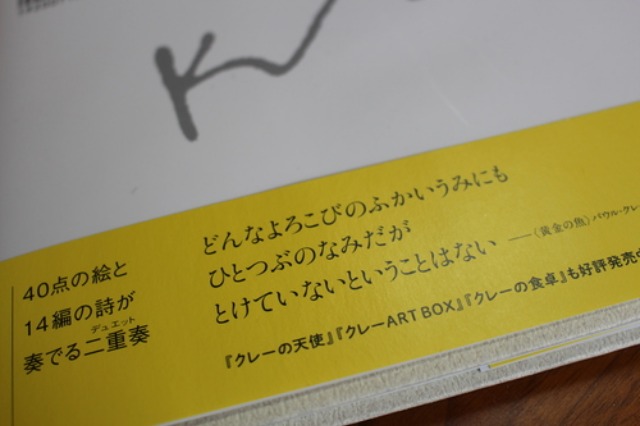 40点の絵と
14編の詩が
デュエット
奏でる二重奏
どんなよろこびのふかいうみにも
ひとつぶのなみだが
とけていないということはない ──〈黄金の魚〉パウル・クレ
『クレーの天使』『クレーART BOX』『クレーの食卓』も好評発売中